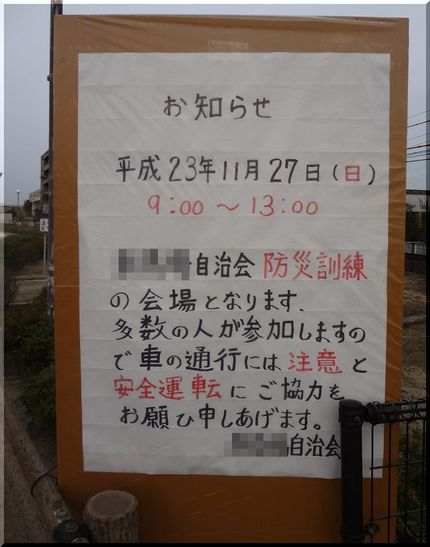 お知らせ
平成23年11月27日(日)
9:00〜13:00
自治会 防災訓練
の会場となります.
多数の人が参加しますの
で車の通行には注意と
安全運転にご協力を
お願ひ申しあげます。
自治会